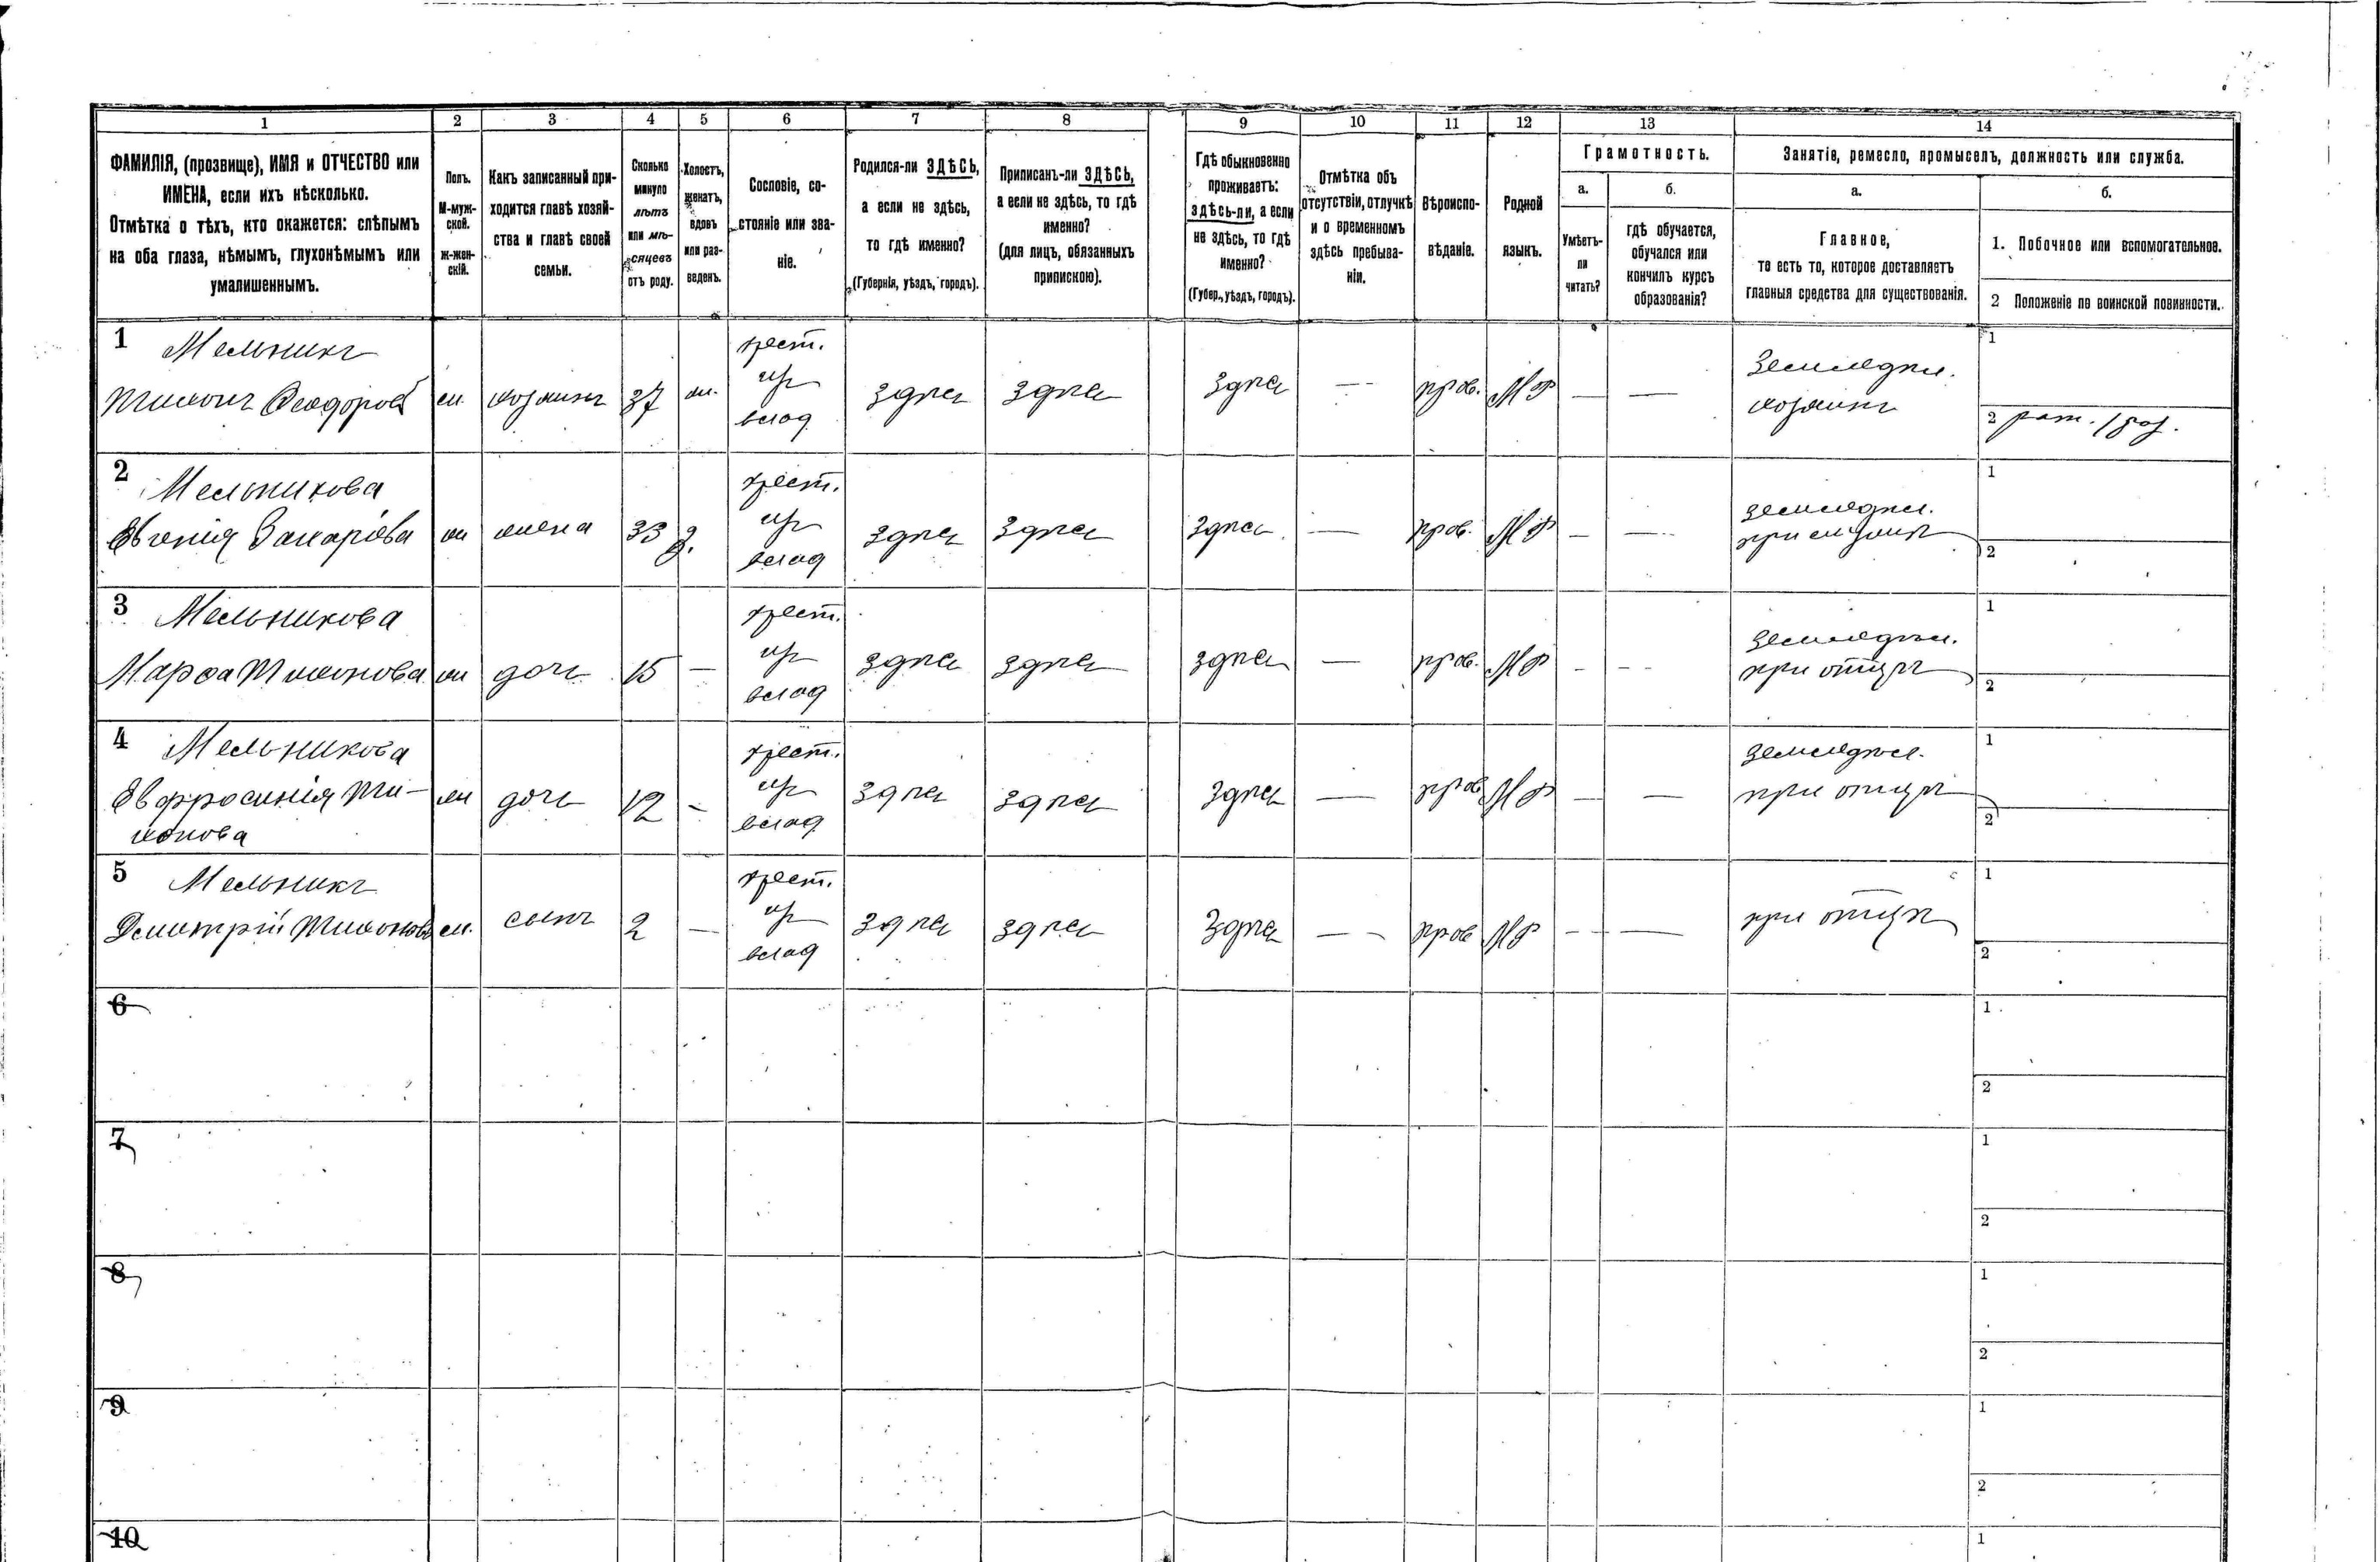 1 2 3 4 5 6 7 8 9 10 11 12 13 14
ФАМИЛІЯ, (прозвище), ИМЯ и ОТЧЕСТВО или
ИМЕНА, если ихъ нѣсколько.
Отмѣтка о тѣхъ, кто окажется: слѣпымъ
на оба глаза, нѣмымъ, глухонѣмымъ или
умалишеннымъ.
Полъ.
М-муж-
ской.
ж-жен-
скій.
Какъ записанный при-
ходится главѣ хозяй-
ства и главѣ своей
семьи.
Сколько
минуло
лѣтъ
или мѣ-
сяцевъ
отъ роду.
Холостъ,
женатъ,
вдовъ
или раз-
веденъ.
Сословіе, со-
стояніе или зва-
ніе.
Родился-ли ЗДѢСЬ,
а если не здѣсь,
то гдѣ именно?
(Губернія, уѣздъ, городъ).
Приписанъ-ли ЗДѢСЬ,
а если не здѣсь, то гдѣ
именно?
(для лицъ, обязанныхъ
припискою).
Гдѣ обыкновенно
проживаетъ:
здѣсь-ли, а если
не здѣсь, то гдѣ
именно?
(Губер., уѣздъ, городъ).
Отмѣтка объ
отсутствіи, отлучкѣ
и о временномъ
здѣсь пребыва-
ніи.
Вѣроиспо-
вѣданіе.
Родной
языкъ.
Грамотность.
а.
Умѣетъ-
ли
читать?
б.
гдѣ обучается,
обучался или
кончилъ курсъ
образованія?
Занятіе, ремесло, промыселъ, должность или служба.
а.
Главное,
то есть то, которое доставляетъ
главныя средства для существованія.
б.
1. Побочное или вспомогательное.
2 Положеніе по воинской повинности.
1 Мельникъ
Тихонъ Ѳеодоровъ
м. хозяинъ 37 ж.
крест.
влад
здѣсь здѣсь здѣсь — пров. МР — —
Земледѣл.
хозяинъ
1
2 рат.
2 Мельникова
Евгенія Захаріева
ж жена 33 з.
крест.
влад
здѣсь здѣсь здѣсь — пров. МР — —
земледѣл.
при мужѣ
1
2
3 Мельникова
Марѳа Тихонова
ж дочь 15 —
крест.
влад
здѣсь здѣсь здѣсь — пров. МР - --
земледѣл.
при отцѣ
1
2
4 Мельникова
Евфросинія Ти-
хонова
ж дочь 12 -
крест.
влад
здѣсь здѣсь здѣсь — пров МР — —
земледѣл.
при отцѣ
1
2
5 Мельникъ
Димитрій Тихоновъ
м. сынъ 2 —
крест.
влад
здѣсь здѣсь здѣсь — пров МР -- —
при отцѣ
1
2
6
1
2
7
1
2
8
1
2
9
1
2
10
1